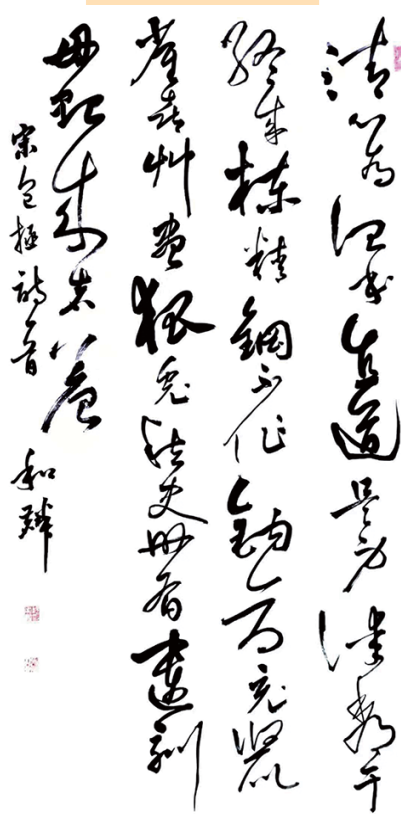 清心為治本直道是身謀秀干
終成棟精鋼不作鈎倉充鼠
雀喜艸盡狐兔愁史册有遺訓
毋貽來者羞
宋包拯詩一首 和